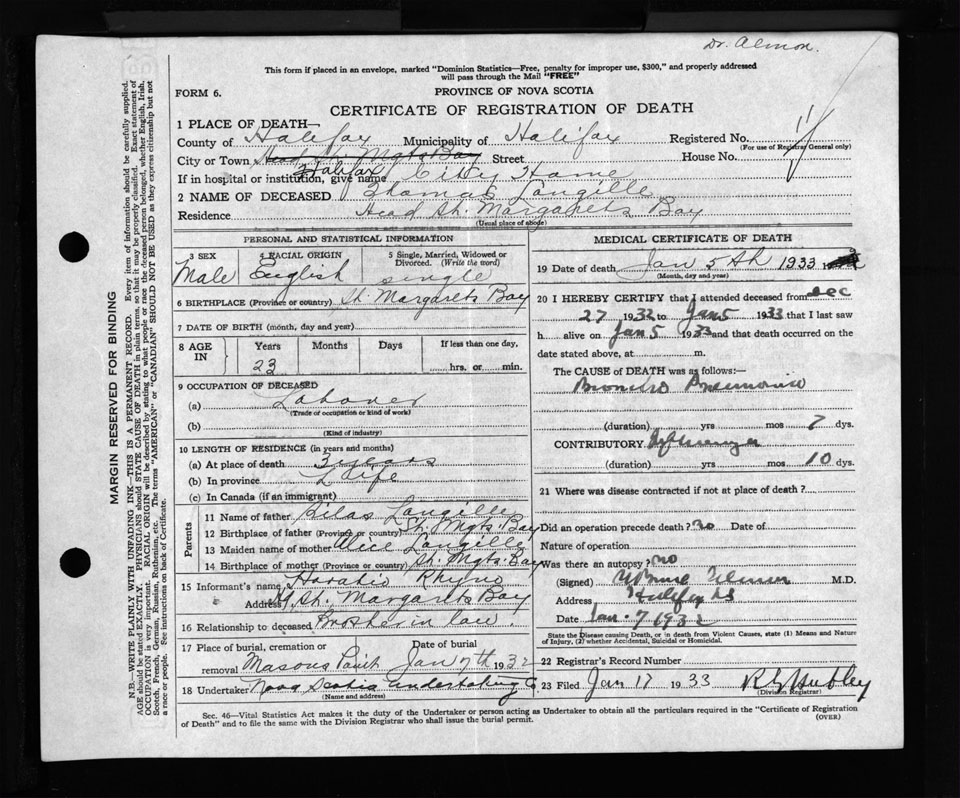 Dr. Almon.
This form if placed in an envelope, marked "Dominion Statistics—Free, penalty for improper use, $300," and properly addressed
will pass through the Mail "FREE"
FORM 6.
PROVINCE OF NOVA SCOTIA
CERTIFICATE OF REGISTRATION OF DEATH
1 PLACE OF DEATH—
County of Halifax Municipality of Halifax Registered No.
(For use of Registrar General only)
City or Town Head St. Mgts Bay Street House No.
Halifax
If in hospital or institution, give name City Home
2 NAME OF DECEASED Thomas Langille
Residence Head St. Margarets Bay
(Usual place of abode)
PERSONAL AND STATISTICAL INFORMATION
3 SEX 4 RACIAL ORIGIN 5 Single, Married, Widowed or Divorced. (Write the word)
Male English single
6 BIRTHPLACE (Province or country) St. Margarets Bay
7 DATE OF BIRTH (month, day and year)
8 AGE IN Years Months Days If less than one day,
23 hrs. or min.
9 OCCUPATION OF DECEASED
(a) Laborer
(Trade of occupation or kind of work)
(b)
(Kind of industry)
10 LENGTH OF RESIDENCE (in years and months)
(a) At place of death 3 years
(b) In province Life
(c) In Canada (if an immigrant)
Parents
11 Name of father Silas Langille
12 Birthplace of father (Province or country) St. Mgts. Bay
13 Maiden name of mother Alice Langille
14 Birthplace of mother (Province or country) St. Mgts. Bay
15 Informant's name Horatio Rhyno
Address H. St. Margarets Bay
16 Relationship to deceased Brother in law.
17 Place of burial, cremation or removal Date of burial
Masons Point Jan 7th 1932
18 Undertaker Nova Scotia Undertaking Co
(Name and address)
MEDICAL CERTIFICATE OF DEATH
19 Date of death Jan 5th 1933
(Month, day and year)
20 I HEREBY CERTIFY that I attended deceased from Dec
27 1932 to Jan 5 1933 that I last saw
h alive on Jan 5 1933 and that death occurred on the
date stated above, at m.
The CAUSE of DEATH was as follows:
Broncho Pneumonia
(duration) yrs mos 7 dys.
CONTRIBUTORY Influenza
(duration) yrs mos 10 dys.
21 Where was disease contracted if not at place of death?
Did an operation precede death? no Date of
Nature of operation
Was there an autopsy? no
(Signed) M.D.
Address Halifax NS
Date Jan. 7 1932
State the Disease causing Death, or in death from Violent Causes, state (1) Means and Nature
of Injury, (2) whether Accidental, Suicidal or Homicidal.
22 Registrar's Record Number
23 Filed Jan 17 1933 Hubley
(Division Registrar)
Sec. 46—Vital Statistics Act makes it the duty of the Undertaker or person acting as Undertaker to obtain all the particulars required in the "Certificate of Registration
of Death" and to file the same with the Division Registrar who shall issue the burial permit.
(OVER)
MARGIN RESERVED FOR BINDING
N.B.—WRITE PLAINLY WITH UNFADING INK—THIS IS A PERMANENT RECORD. Every item of information should be carefully supplied.
AGE should be stated EXACTLY. PHYSICIANS should STATE CAUSE OF DEATH in plain terms, so that it may be properly classified. Exact statement of
OCCUPATION is very important. RACIAL ORIGIN will be described by stating to what people or race the deceased person belonged, whether English, Irish,
Scotch, French, German, Russian, Ruthenian, etc. The terms "AMERICAN" or "CANADIAN" SHOULD NOT BE USED as they express citizenship but not
a race or people. See instructions on back of Certificate.